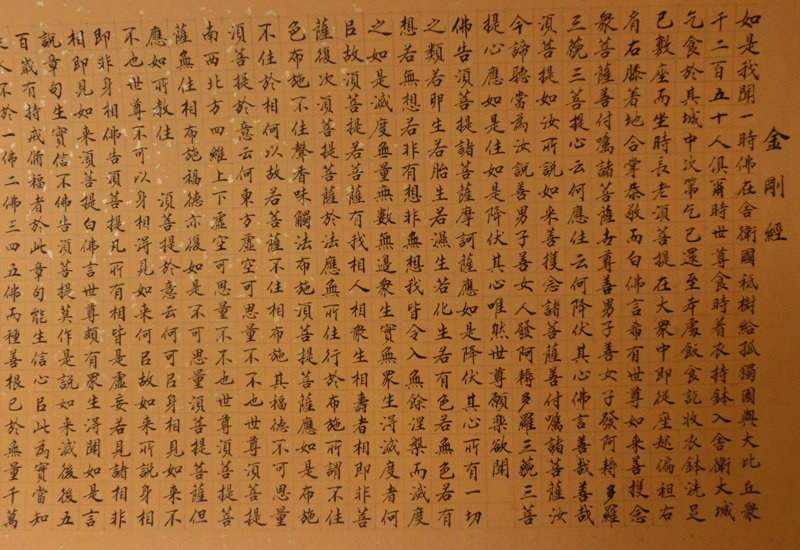 金剛經
如是我聞一時佛在舍衛國祇樹給孤獨園與大比丘衆
千二百五十人俱爾時世尊食時着衣持鉢入舍衛大城
乞食於其城中次第乞已還至本處飯食訖收衣鉢洗足
已敷座而坐時長老湏菩提在大衆中即從座起偏袒右
肩右膝着地合掌恭敬而白佛言希有世尊如来善護念
衆菩薩善付囑諸菩薩世尊善男子善女子發阿耨多羅
三藐三菩提心云何應住云何降伏其心佛言善哉善哉
湏菩提如汝所說如来善護念諸菩薩善付囑諸菩薩汝
今諦聽當為汝說善男子善女人發阿耨多羅三藐三菩
提心應如是住如是降伏其心唯然世尊願樂欲聞
佛告湏菩提諸菩薩摩訶薩應如是降伏其心所有一切
之類若卵生若胎生若濕生若化生若有色若無色若有
想若無想若非有想非無想我皆令入無餘涅槃而滅度
之如是滅度無量無數無邊衆生實無衆生得滅度者何
㠯故湏菩提若菩薩有我相人相衆生相壽者相即非菩
薩復次湏菩提菩薩於法應無所住行於布施所謂不住
色布施不住聲香味觸法布施湏菩提菩薩應如是布施
不住於相何以故若菩薩不住相布施其福德不可思量
湏菩提於意云何東方虛空可思量不不也世尊湏菩提
南西北方四維上下虛空可思量不不也世尊湏菩提菩
薩無住相布施福德亦復如是不可思量湏菩提菩薩但
應如所教住 湏菩提於意云何可㠯身相見如来不
不也世尊不可以身相得見如来何㠯故如来所說身相
即非身相佛告湏菩提凡所有相皆是虛妄若見諸相非
相即見如来湏菩提白佛言世尊頗有衆生得聞如是言
說章句生實信不佛告湏菩提莫作是說如来滅後後五
百歲有持戒脩福者於此章句能生信心㠯此為實當知
是人不於一佛二佛三四五佛而種善根已於無量千萬